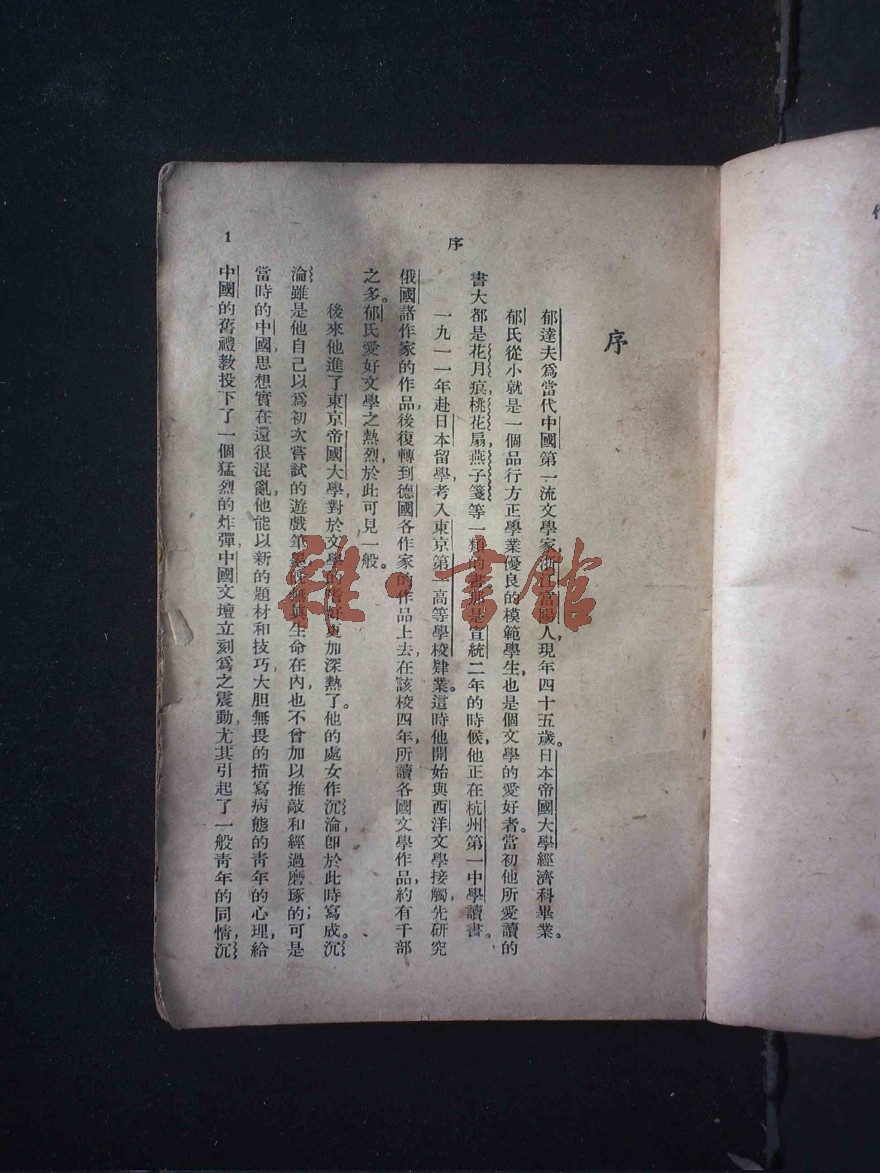 序
郁達夫爲當代中國第一流文學家，浙江富陽人，現年四十五歲。日本帝國大學經濟科畢業。
郁氏從小就是一個品行方正學業優良的模範學生，也是個文學的愛好者。當初他所愛讀的
書大都是花月痕，桃花扇，燕子箋等一類的書，那是宣統二年的時候，他正在杭州第一中學讀書。
一九一一年赴日本留學，考入東京第一高等學校肄業。這時他開始與西洋文學接觸，先研究
俄國諸作家的作品，後復轉到德國各作家的作品上去，在該校四年，所讀各國文學作品，約有千部
之多。郁氏愛好文學之熱烈，於此可見一般。
後來他進了東京帝國大學，對於文學的嗜好更加深熱了。他的處女作沉淪，卽於此時寫成。沉
淪雖是他自己以爲初次嘗試的遊戲筆墨，旣無眞生命在內，也不曾加以推敲和經過磨琢的；可是
當時的中國，思想實在還很混亂，他能以新的題材和技巧，大胆無畏的描寫病態的靑年的心理，給
中國的舊禮教投下了一個猛烈的炸彈，中國文壇立刻爲之震動，尤其引起了一般靑年的同情，沉
序
1
雜·書館